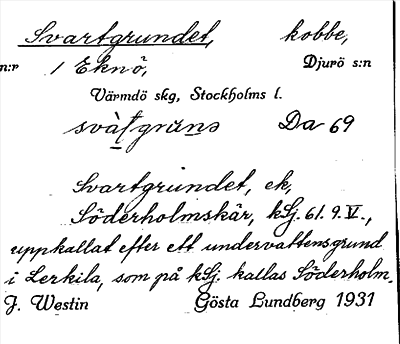 Svartgrundet, kobbe,
n:r 1 Eknö, Djurö s:n
Värmdö skg, Stockholms l.
Da 69
Svartgrundet, ek,
Söderholmskär, kSj. 61. 9. IV.,
uppkallat efter ett undervattensgrund
i Lerkila, som på kSj. kallas Söderholm.
J. Westin Gösta Lundberg 1931